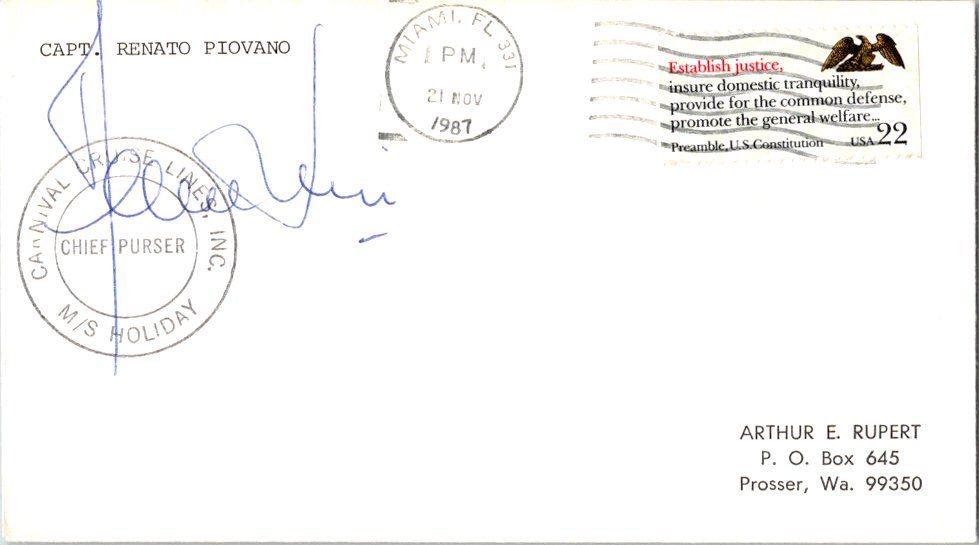 CAPT. RENATO PIOVANO
MIAMI, FL 331
PM
21 NOV
1987
Establish justice,
insure domestic tranquility,
provide for the common defense,
promote the general welfare...
Preamble, U.S. Constitution USA 22
CARNIVAL CRUISE LINES, INC.
CHIEF PURSER
M/S HOLIDAY
ARTHUR E. RUPERT
P. O. Box 645
Prosser, Wa. 99350